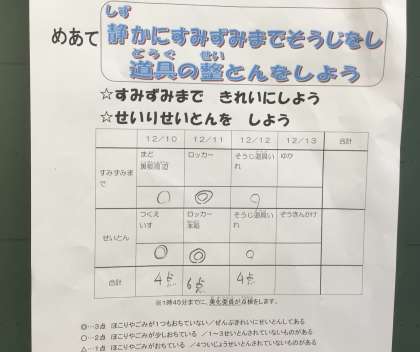 めあて 静かにすみずみまでそうじをし
しず
どうぐ せい
道具の整とんをしよう
☆すみずみまで きれいにしよう
☆せいりせいとんを しよう
12/10 12/11 12/12 12/13 合計
すみずみまで まど ロッカー そうじ道具いれ ゆか
○ ◎ ○
せいとん つくえ いす ロッカー 本箱 そうじ道具いれ ぞうきんかけ
○ ◎ ○
合計 4点 6点 4点
※1時45分までに、美化委員が点検をします。
◎…3点 ほこりやごみが1つもおちていない／ぜんぶきれいにせいとんしてある
○…2点 ほこりやごみが少しおちている ／1～3せいとんされていないものがある
△…1点 ほこりやごみがおちている ／4ついじょうせいとんされていないものがある